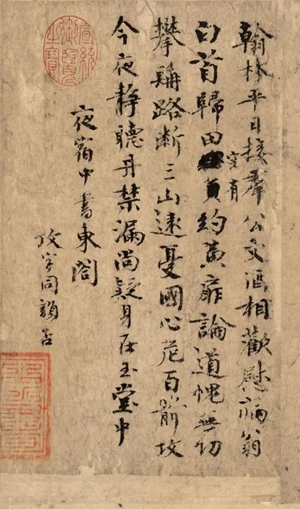 翰林平日接羣公文酒相歡慰病翁
空有
白首歸田負約黄扉論道愧無功
攀髯路斷三山遠憂國心危百箭攻
今夜静聽丹禁漏尚疑身在玉堂中
夜宿中書東閣
攻字同韻否